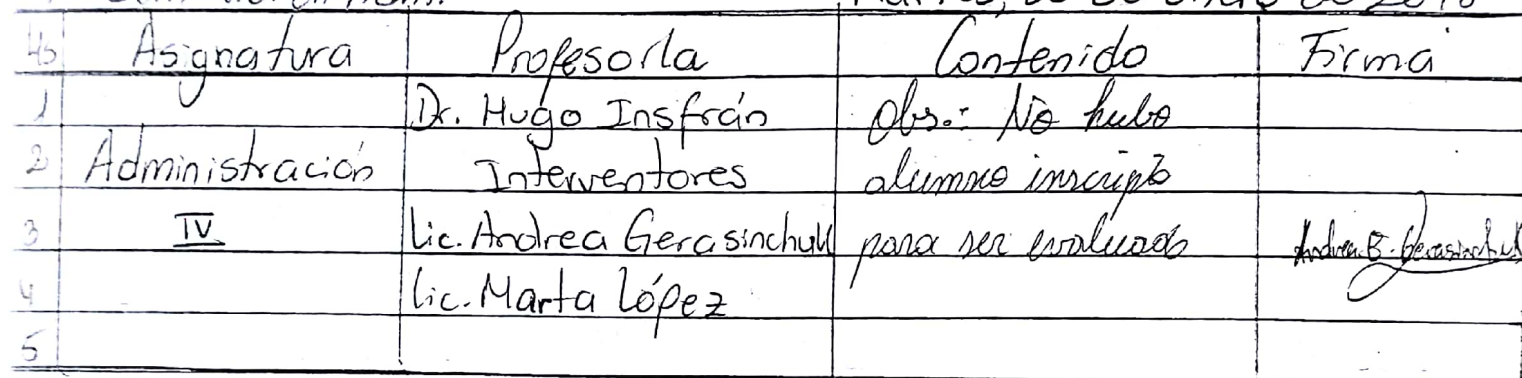 Hs Asignatura Profesor/a Contenido Firma
1 Dr. Hugo Insfrán Obs.: No hubo
2 Administración Interventores alumno inscripto
3 IV Lic. Andrea Gerasinchuk para ser evaluado Andrea B. Gerasinchuk
4 Lic. Marta López
5